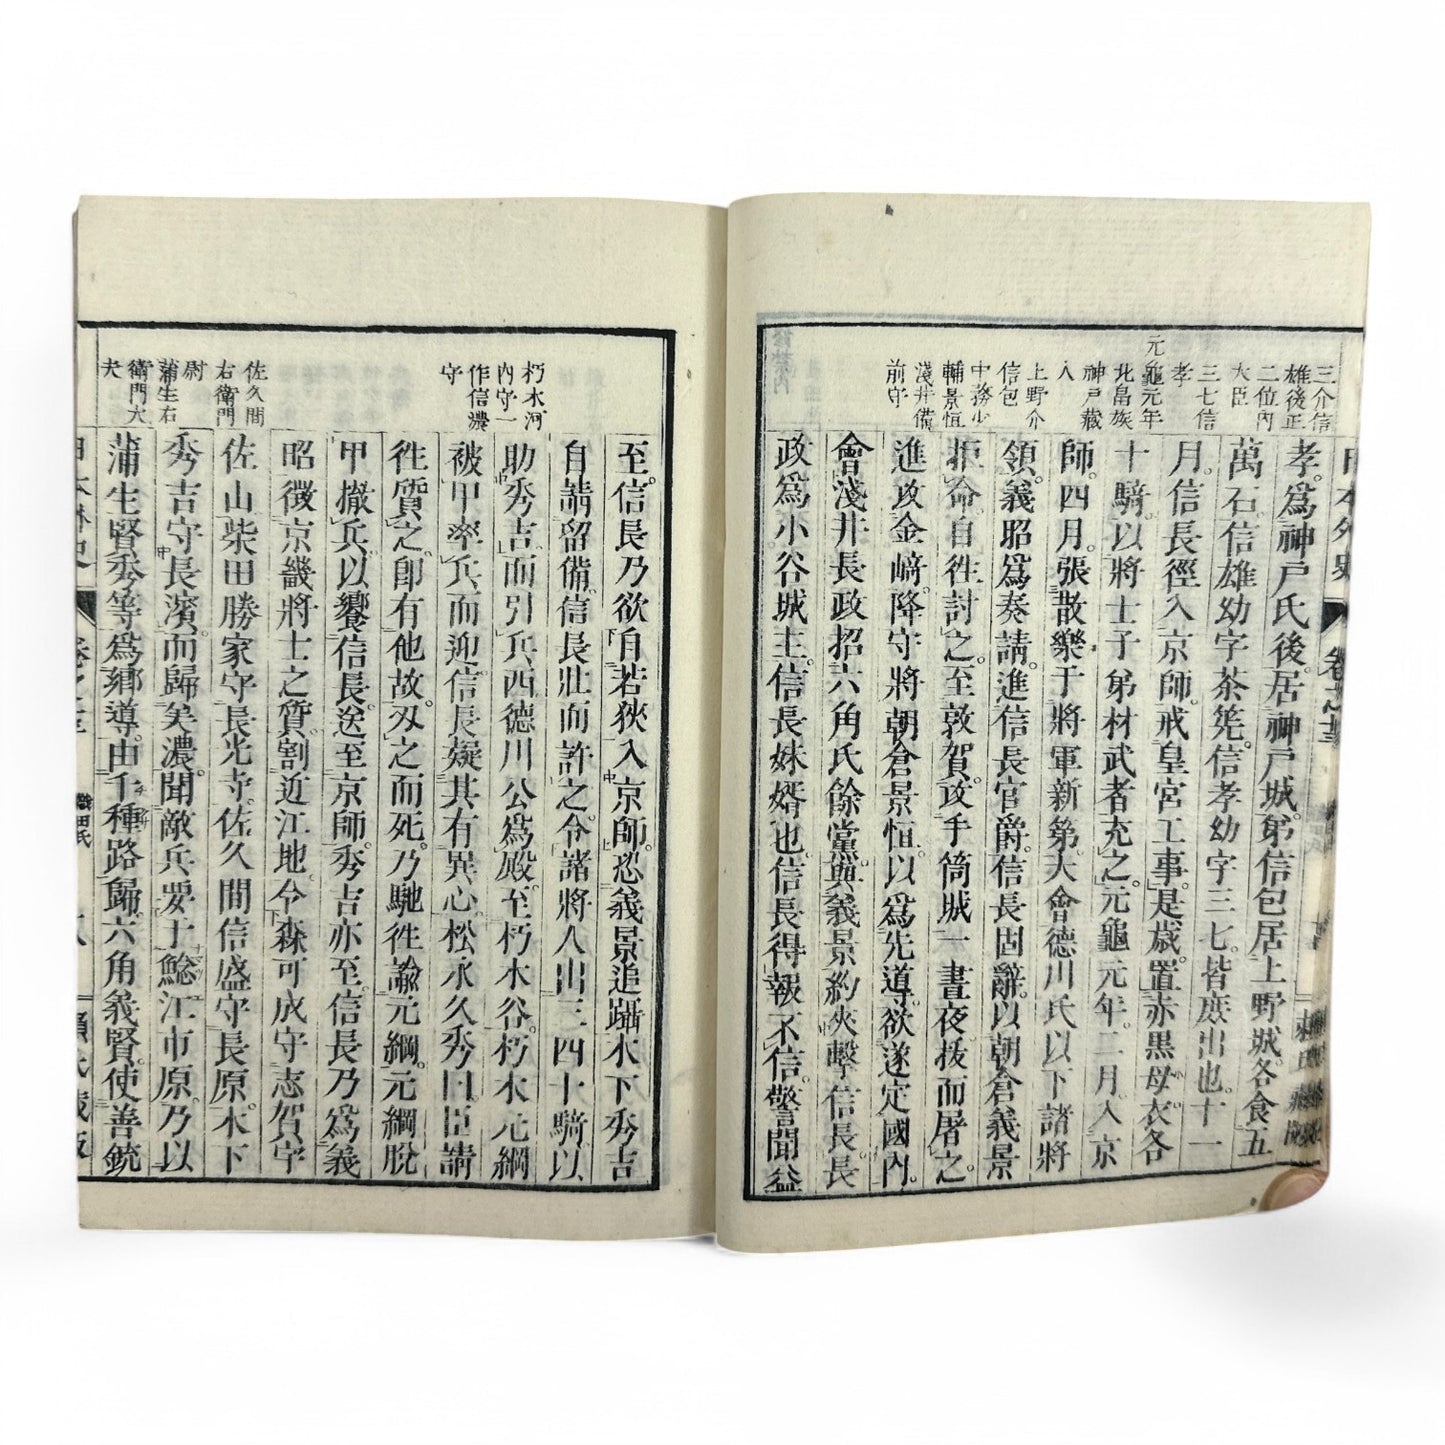 三介信
雄後正
二位內
大臣
三七信
孝
元龜元年
北畠族
神戶藏
人
上野介
信包
中務少
輔景恒
淺井備
前守
日本外史
孝爲神戶氏後居神戶城弟信包居上野城各食五
萬石信雄幼字茶筅信孝幼字三七皆庶出也十一
月信長徑入京師戒皇宮工事是歲置赤黑母衣各
十騎以將士子弟材武者充之元龜元年二月入京
師四月張散樂于將軍新第大會德川氏以下諸將
領義昭爲奏請進信長官爵信長固辭以朝倉義景
拒命自往討之至敦賀攻手筒城一晝夜拔而屠之
進攻金﨑降守將朝倉景恒以爲先導欲遂定國內
會淺井長政招六角氏餘黨與義景約夾擊信長長
政爲小谷城主信長妹婿也信長得報不信警聞益
朽木河
內守一
作信濃
守
佐久間
右衛門
尉
蒲生右
衛門大
夫
至信長乃欲自若狹入京師恐義景追躡木下秀吉
自請留備信長壯而許之令諸將人出三四十騎以
助秀吉而引兵西德川公爲殿至朽木谷朽木元綱
被甲率兵而迎信長疑其有異心松永久秀曰臣請
往質之卽有他故刄之而死乃馳往諭元綱元綱脫
甲撤兵以饗信長送至京師秀吉亦至信長乃爲義
昭徵京畿將士之質割近江地令森可成守志賀宇
佐山柴田勝家守長光寺佐久間信盛守長原木下
秀吉守長濱而歸美濃聞敵兵要于鯰江市原乃以
蒲生賢秀等爲鄕導由千種路歸六角義賢使善銃
日本外史
織田氏
賴氏藏版